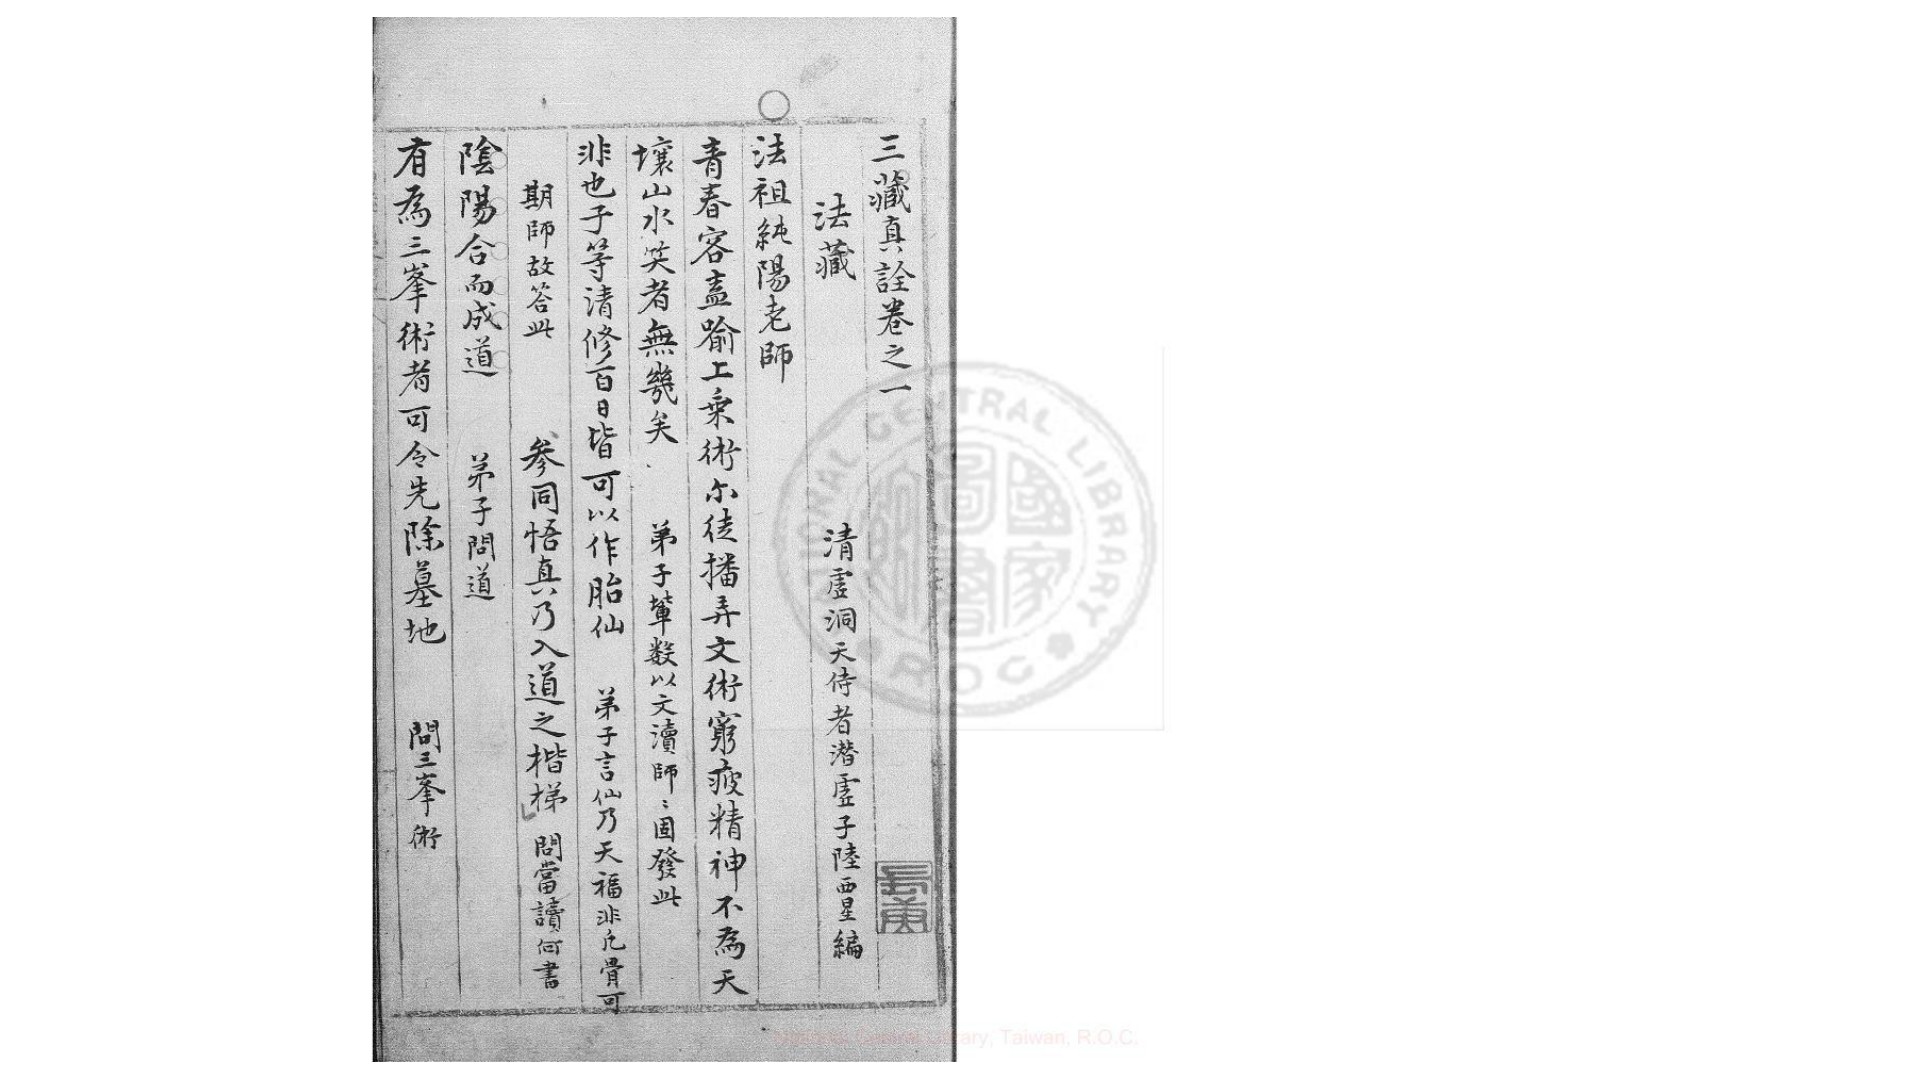 三藏真詮卷之一
法藏 清虛洞天侍者潛虛子陸西星編
法祖純陽老師
青春容盍踰上乘術尔徒播弄文術窮疲精神不為天
壤山水笑者無幾矣 弟子輩数以文瀆師〻因發此
非也子等清修百日皆可以作胎仙 弟子言仙乃天福非凡骨可
期師故答此 參同悟真乃入道之楷梯 問當讀何書
陰陽合而成道 弟子問道
有為三峯術者可令先除墓地 問三峯術
NATIONAL CENTRAL LIBRARY R.O.C
國家圖書館
National Central Library, Taiwan, R.O.C.